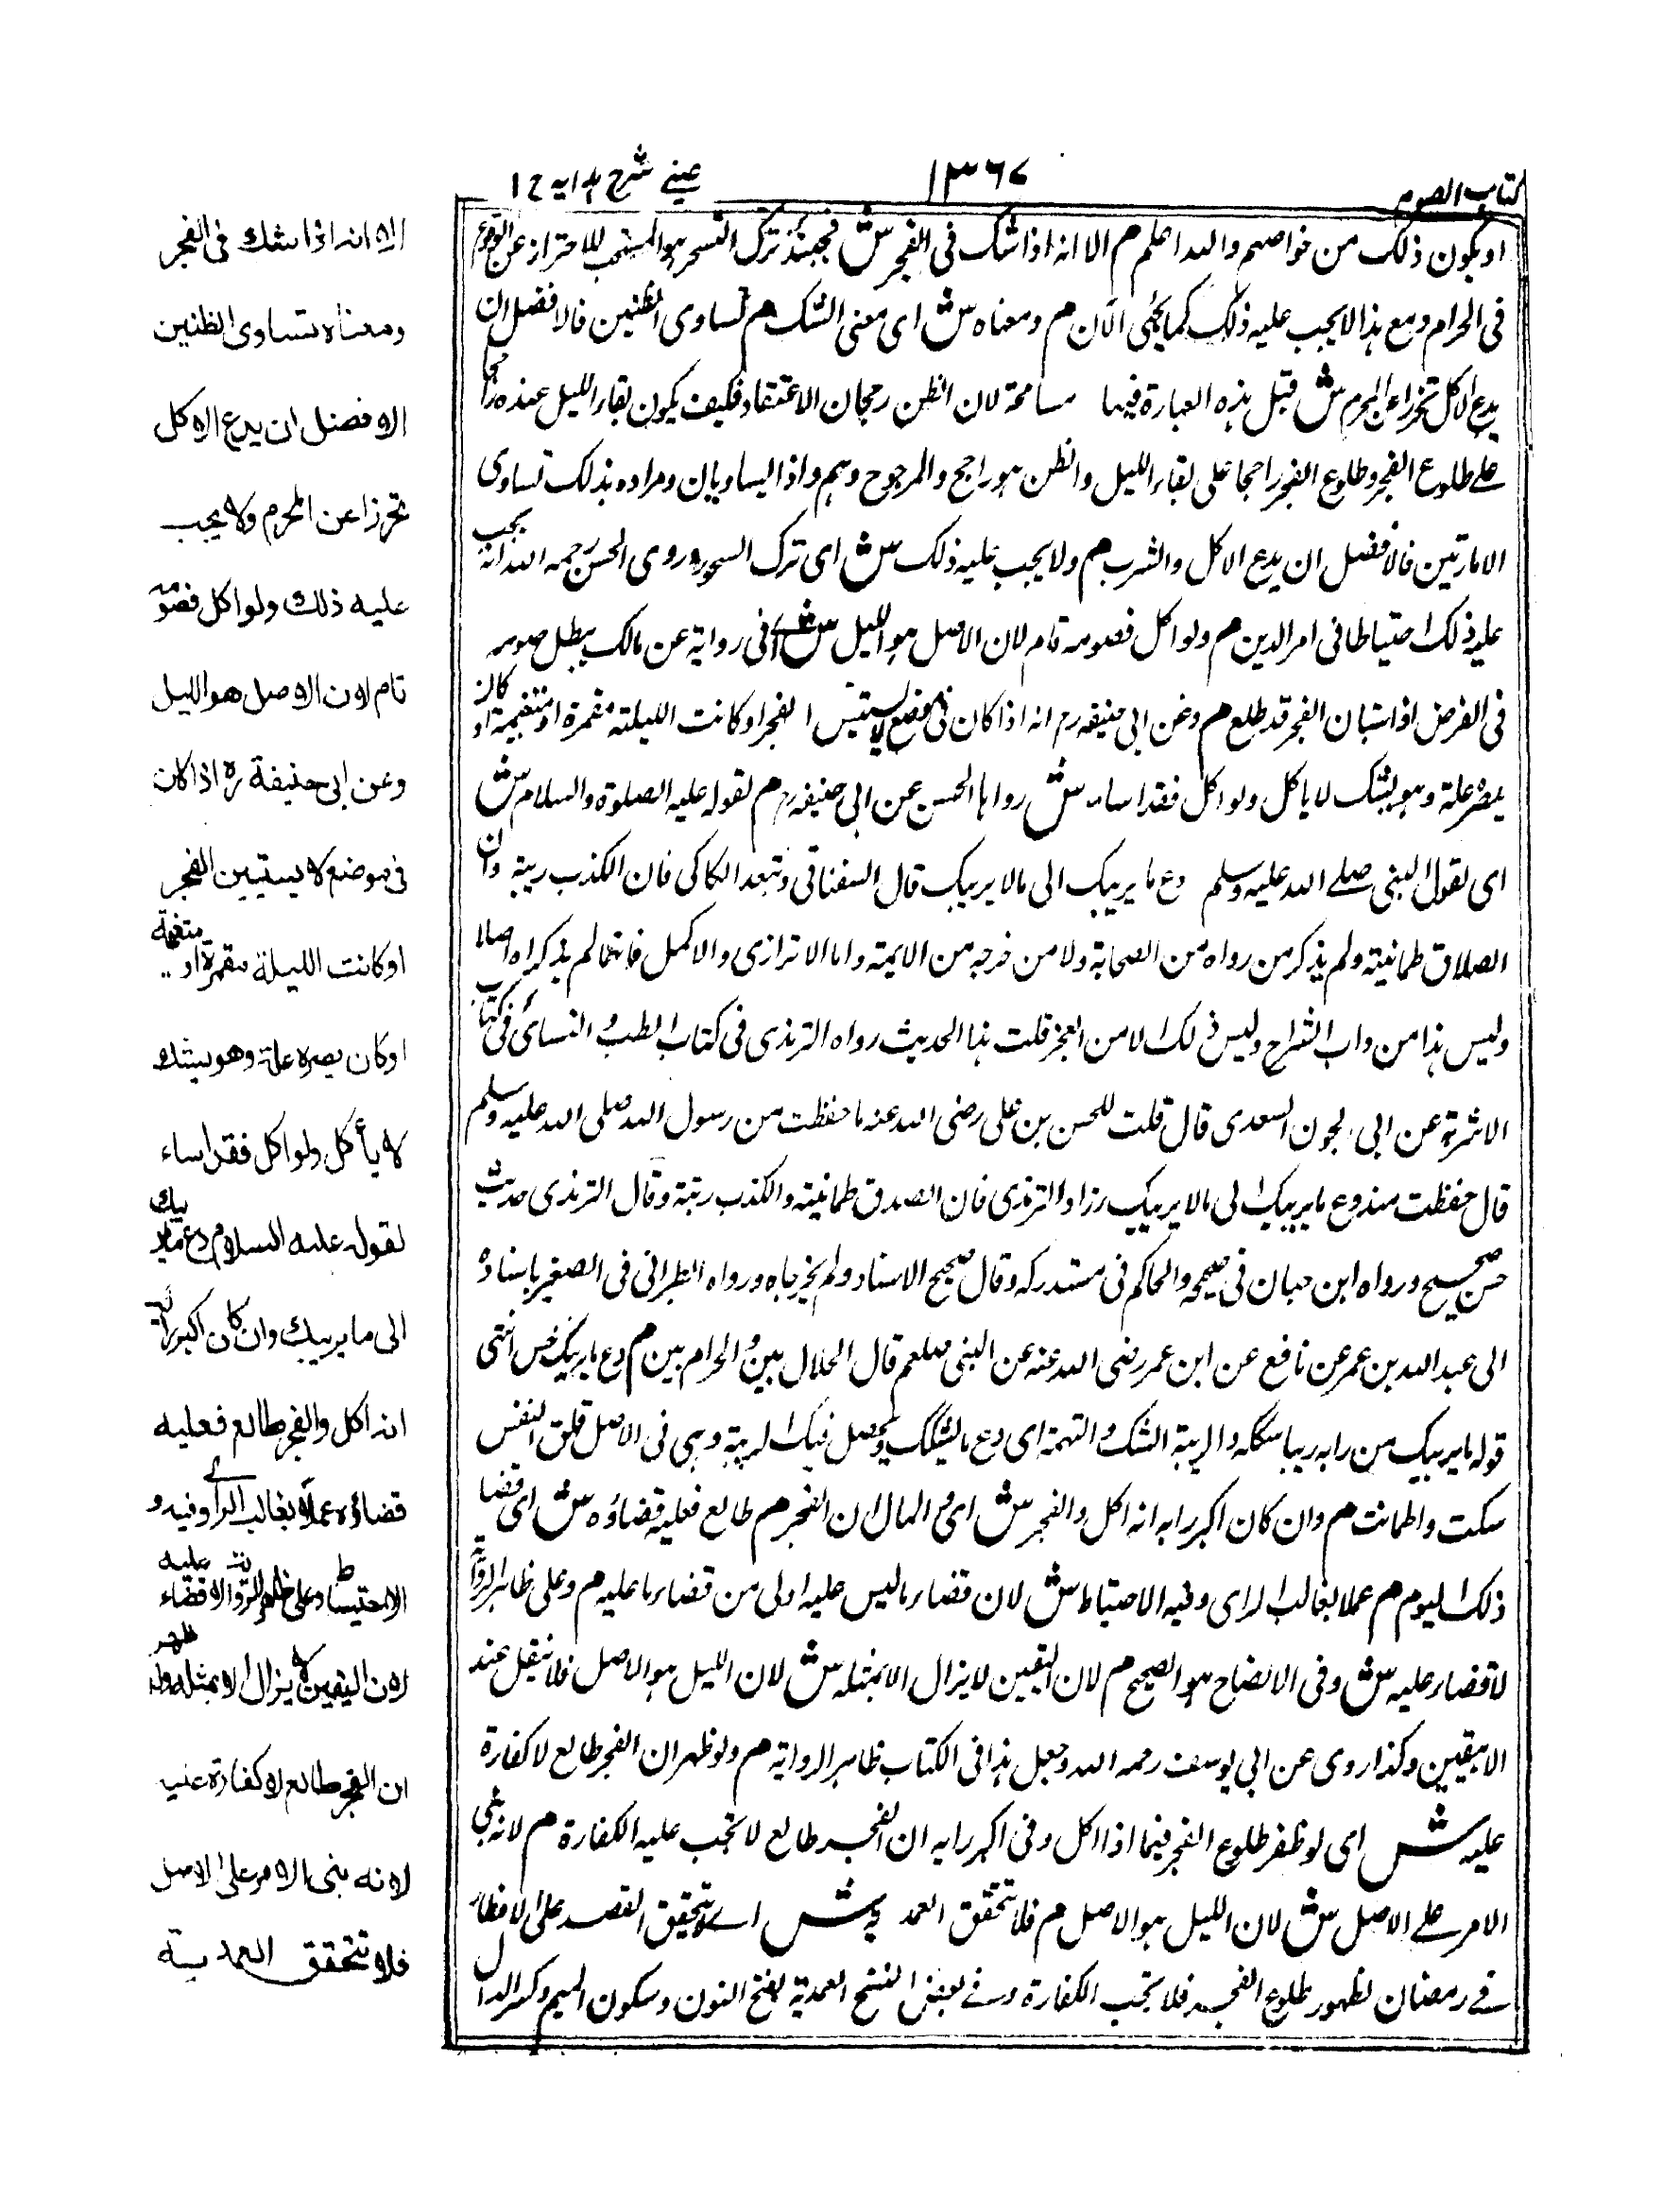 كتاب الصوم
١٣٦٧
عینے شرح ہدایہ ج ١
او يكون ذلك من خواصهم والله اعلم م الا انه اذا شك فى الفجر ش فحينئذ ترك التسحر هو المستحب للاحتراز عن الوقوع
فى الحرام ومع هذا لا يجب عليه ذلك كما يجئى الآن م ومعناه ش اى معنى الشك م تساوى الظنين فالافضل ان
يدع الاكل تحرزا عن المحرم ش قيل هذه العبارة فيها مسامحة لان الظن رجحان الاعتقاد فكيف يكون بقاء الليل عنده راجحا
على طلوع الفجر وطلوع الفجر راجحا على بقاء الليل والظن هو راجح والمرجوح وهم واذا اليساويان ومراده بذلك تساوى
الامارتين فالافضل ان يدع الاكل والشرب م ولا يجب عليه ذلك ش اى ترك السحور وروى الحسن رحمه الله انه يجب
عليه ذلك احتياطا فى امر الدين م ولو اكل فصومه تام لان الاصل هو الليل ش وفى رواية عن مالك يبطل صومه
فى الفرض اذا استبان الفجر قد طلع م وعن ابى حنيفه رح انه اذا كان فى موضع لا يستبين الفجر او كانت الليلة مقمرة او متغيمة او كان
ببصره علة وهو يشك لا ياكل ولو اكل فقد اساء ش رواها الحسن عن ابى حنيفه رح م لقوله عليه الصلوة والسلام ش
اى لقول النبى صلے الله عليه وسلم دع ما يريبك الى مالا يريبك قال السغناقى وتبعه الكاكى فان الكذب ريبة وان
الصلاق طمانينة ولم يذكر من رواه من الصحابة ولا من خرجه من الايمة واما الاترازى والاكمل فانهما لم يذكراه اصلا
وليس هذا من داب الشراح وليس ذلك الا من العجز قلت هذا الحديث رواه الترمذى فى كتاب الطب و النسائى فى كتاب
الاشربة عن ابى الجون السعدى قال قلت للحسن بن على رضى الله عنه ما حفظت من رسول الله صلى الله عليه وسلم
قال حفظت منه دع ما يريبك الى مالا يريبك زاد الترمذى فان الصدق طمانينة والكذب ريبة وقال الترمذى حديث
حسن صحيح ورواه ابن حبان فى صحيحه والحاكم فى مستدركه وقال صحيح الاسناد ولم يخرجاه ورواه الطبرانى فى الصغير باسناده
الى عبد الله بن عمر عن نافع عن ابن عمر رضى الله عنه عن النبى صلعم قال الحلال بين و الحرام بين م دع ما يريبك ش انتهى
قوله ما يريبك من رابه ريبا شككه والريبة الشك و التهمة اى دع ما يشكك ويحصل فيك الريبة وهى فى الاصل قلق النفس
سكت واطمانت م وان كان اكبر رايه انه اكل والفجر ش اى و الحال ان الفجر م طالع فعليه قضاؤه ش اى قضا
ذلك اليوم م عملا بغالب الراى وفيه الاحتياط ش لان قضاء ما ليس عليه اولى من قضاء ما عليه م وعلى ظاهر الرواية
لا قضاء عليه ش وفى الايضاح هو الصحيح م لان اليقين لا يزال الا بمثله ش لان الليل هو الاصل فلا ينتقل عنه
الا بيقين وكذا روى عن ابى يوسف رحمه الله وجعل هذا فى الكتاب ظاهر الرواية م ولو ظهر ان الفجر طالع لا كفارة
عليه ش اى لو ظهر طلوع الفجر فيما اذا اكل وفى اكبر رايه ان الفجر طالع لا تجب عليه الكفارة م لانه بنى
الامر على الاصل ش لان الليل هو الاصل م فلا تتحقق العمدية ش اے لا يتحقق القصد على الافطار
فے رمضان لظهور طلوع الفجر فلا تجب الكفارة وفے بعض النسخ العمدية بفتح النون وسكون الميم وكسر الدال
الا انه اذا شك فى الفجر
ومعناه تساوى الظنين
الافضل ان يدع الاكل
تحرزا عن المحرم ولا يجب
عليه ذلك ولو اكل فصومه
تام لان الاصل هو الليل
وعن ابى حنيفة رہ اذا كان
فى موضع لا يستبين الفجر
او كانت الليلة مقمرة او متغيمة
او كان ببصره علة وهو يشك
لا يأكل ولو اكل فقد اساء
لقوله عليه السلام دع ما يريبك
الى ما يريبك وان كان اكبر رائه
انه اكل والفجر طالع فعليه
قضاؤه عملا بغالب الراے وفيه
الاحتياط وعلى ظاهر الرواية لا قضاء عليه
لان اليقين لا يزال الا بمثله ولو ظهر
ان الفجر طالع لا كفارة عليه
لانه بنى الامر على الاصل
فلا تتحقق العمدية